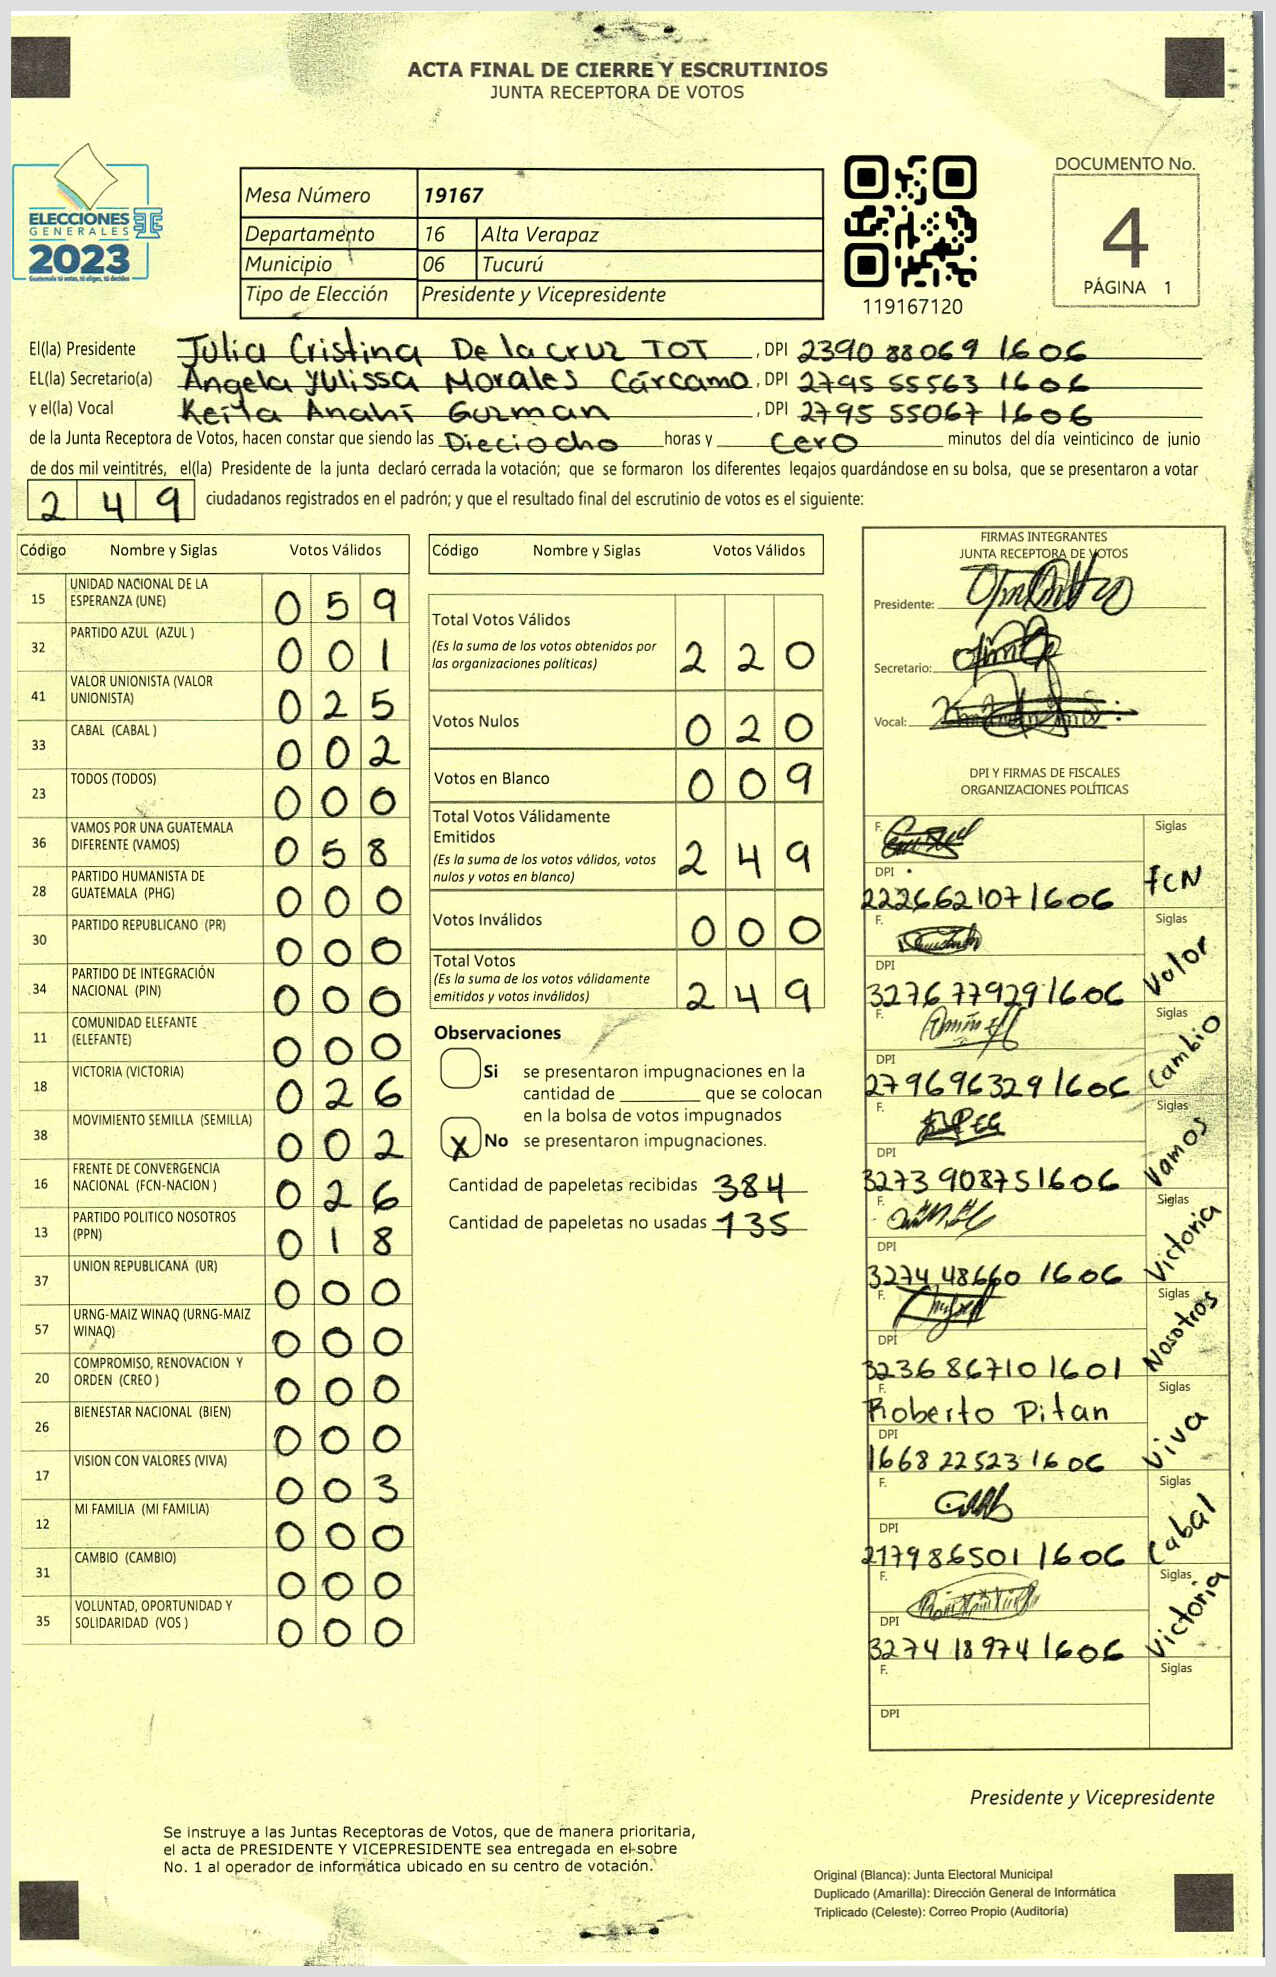 ACTA FINAL DE CIERRE Y ESCRUTINIOS
JUNTA RECEPTORA DE VOTOS
ELECCIONES
GENERALES
2023
Guatemala tú votas, tú eliges, tú decides
Mesa Número 19167
Departamento 16 Alta Verapaz
Municipio 06 Tucurú
Tipo de Elección Presidente y Vicepresidente
119167120
DOCUMENTO No.
4
PÁGINA 1
El(la) Presidente Julia Cristina De la cruz TOT, DPI 2390 88069 1606
EL(la) Secretario(a) Angela Yulissa Morales Cárcamo, DPI 2795 55563 1606
y el(la) Vocal Keila Anahí Guzman, DPI 2795 55067 1606
de la Junta Receptora de Votos, hacen constar que siendo las Dieciocho horas y cero minutos del día veinticinco de junio
de dos mil veintitrés, el(la) Presidente de la junta declaró cerrada la votación; que se formaron los diferentes legajos guardándose en su bolsa, que se presentaron a votar
249 ciudadanos registrados en el padrón; y que el resultado final del escrutinio de votos es el siguiente:
Código Nombre y Siglas Votos Válidos
15 UNIDAD NACIONAL DE LA ESPERANZA (UNE) 059
32 PARTIDO AZUL (AZUL ) 001
41 VALOR UNIONISTA (VALOR UNIONISTA) 025
33 CABAL (CABAL ) 002
23 TODOS (TODOS) 000
36 VAMOS POR UNA GUATEMALA DIFERENTE (VAMOS) 058
28 PARTIDO HUMANISTA DE GUATEMALA (PHG) 000
30 PARTIDO REPUBLICANO (PR) 000
34 PARTIDO DE INTEGRACIÓN NACIONAL (PIN) 000
11 COMUNIDAD ELEFANTE (ELEFANTE) 000
18 VICTORIA (VICTORIA) 026
38 MOVIMIENTO SEMILLA (SEMILLA) 002
16 FRENTE DE CONVERGENCIA NACIONAL (FCN-NACION ) 026
13 PARTIDO POLITICO NOSOTROS (PPN) 018
37 UNION REPUBLICANA (UR) 000
57 URNG-MAIZ WINAQ (URNG-MAIZ WINAQ) 000
20 COMPROMISO, RENOVACION Y ORDEN (CREO ) 000
26 BIENESTAR NACIONAL (BIEN) 000
17 VISION CON VALORES (VIVA) 003
12 MI FAMILIA (MI FAMILIA) 000
31 CAMBIO (CAMBIO) 000
35 VOLUNTAD, OPORTUNIDAD Y SOLIDARIDAD (VOS ) 000
Código Nombre y Siglas Votos Válidos
Total Votos Válidos 220
(Es la suma de los votos obtenidos por
las organizaciones políticas)
Votos Nulos 020
Votos en Blanco 009
Total Votos Válidamente
Emitidos 249
(Es la suma de los votos válidos, votos
nulos y votos en blanco)
Votos Inválidos 000
Total Votos 249
(Es la suma de los votos válidamente
emitidos y votos inválidos)
Observaciones
Si se presentaron impugnaciones en la
cantidad de ________ que se colocan
en la bolsa de votos impugnados
X No se presentaron impugnaciones.
Cantidad de papeletas recibidas 384
Cantidad de papeletas no usadas 135
FIRMAS INTEGRANTES
JUNTA RECEPTORA DE VOTOS
Presidente:
Secretario:
Vocal:
DPI Y FIRMAS DE FISCALES
ORGANIZACIONES POLÍTICAS
F. Siglas
DPI
222662107 1606 FCN
F. Siglas
DPI
3276 77929 1606 Valor
F. Siglas
DPI
279696329 1606 Cambio
F. Siglas
DPI
3273 90875 1606 Vamos
F. Siglas
DPI
3274 48660 1606 Victoria
F. Siglas
DPI
3236 86710 1601 Nosotros
F. Siglas
Roberto Pitan
DPI
1668 22523 1606 Viva
F. Siglas
DPI
2179 86501 1606 Cabal
F. Siglas
DPI
3274 18974 1606 Victoria
F. Siglas
DPI
Presidente y Vicepresidente
Se instruye a las Juntas Receptoras de Votos, que de manera prioritaria,
el acta de PRESIDENTE Y VICEPRESIDENTE sea entregada en el sobre
No. 1 al operador de informática ubicado en su centro de votación.
Original (Blanca): Junta Electoral Municipal
Duplicado (Amarilla): Dirección General de Informática
Triplicado (Celeste): Correo Propio (Auditoría)